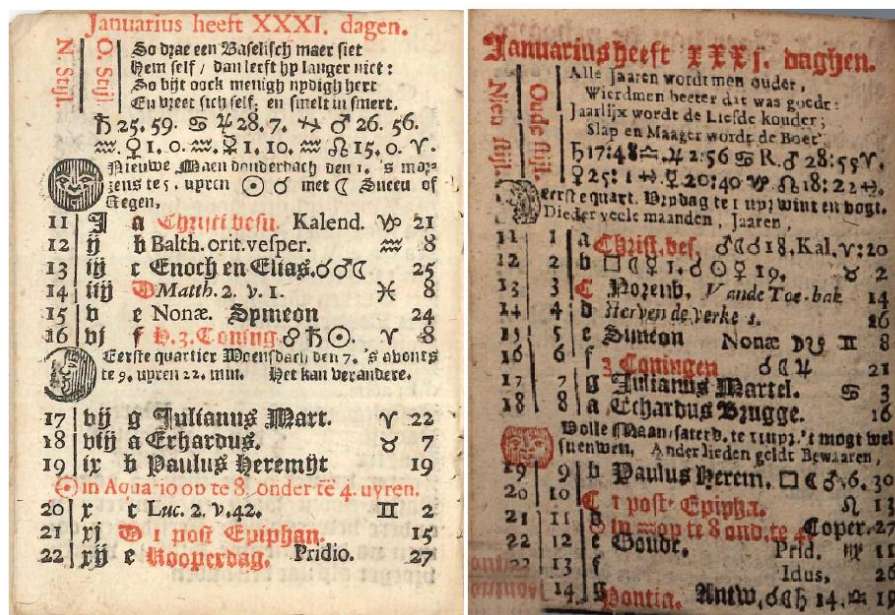 Januarius heeft XXXI. dagen.
N. Stijl.
O. Stijl.
So drae een Baselisch maer siet
Hem self / dan leeft hy langer niet :
So bijt oock menigh nydigh hert
En vreet sich self; en smelt in smert.
♄ 25. 59. ♋ ♃ 28. 7. ♂ 26. 56.
♒. ♀ 1. 0. ♒. ☿ 1. 10. ♒ ☊ 15. 0. ♈.
Nieuwe Maen donderdach den 1. 's mor-
gens te 5. uyren ☉ ☌ met ☾ Sneeu of
Regen,
11 j a Christi besn. Kalend. ♑ 21
12 ij b Balth. orit. vesper. ♒ 8
13 iij c Enoch en Elias. ☌ ♂ ☾ 25
14 iiij D Matth. 2. v. 1. ♓ 8
15 v e Nonæ. Symeon 24
16 vj f H. 3. Coning ☍ ♄ ☉. ♈ 8
Eerste quartier Woensdach den 7. 's avonts
te 9. uyren 22. min. Het kan verandere.
17 vij g Julianus Mart. ♈ 22
18 viij a Erhardus. ♉ 7
19 ix b Paulus Heremijt 19
☉ in Aquario op te 8. onder tē 4. uyren.
20 x c Luc. 2. v. 42. ♊ 2
21 xj D 1 post Epiphan. 15
22 xij e Kooperdag. Pridio. 27
Januarius heeft XXXI. daghen.
Nieu stijl.
Oude stijl.
Alle Jaaren wordt men ouder,
Wierdmen beeter dat was goedt:
Jaarlijx wordt de Liefde kouder;
Slap en Maager wordt de Boet
♄ 17:48 ♎. ♃ 2:56 ♋ R. ♂ 28:55 ♈.
♀ 25: 1 ☿ 20:40 ♑. ☊ 18: 22
eerste quart. Vrydag te 1 uyr wint en vogt.
Dieder veele maanden, Jaaren,
11 1 a Christ. bes. ☌ ♂ ☾ 18. Kal. ♈: 20
12 2 b □ ☾ ☿ 1. ☌ ☉ ♀ 19. ♉ 2
13 3 C Norenb. Vande Toe-bak 14
14 4 d Herven de verke 16
15 5 e Simeon Nonæ ♊ 8
16 6 f 3 Coningen ☌ ☾ ♃ 21
17 7 g Julianus Martel. ♋ 3
18 8 a Echardus Brugge. 16
Volle Maan, saterd. te 11 uyr. 't mogt wel
sneuwen, Ander lieden geldt Bewaaren,
19 9 b Paulus Herem. □ ☾ ♂. 6. 30
20 10 C 1 post Epipha. ♌ 13
21 11 op te 8 ond. te 4 Coper. 27
22 12 e Goude. Prid. ♍ 11
22 13 f Idus, 26
14 g Pontia. Antw. ☌ ☾ ♄ 14.